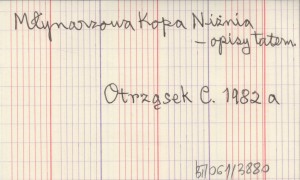 Młynarzowa Kopa Niżnia
– opisy tatem.
Otrząsek C. 1982 a
5/061/3880